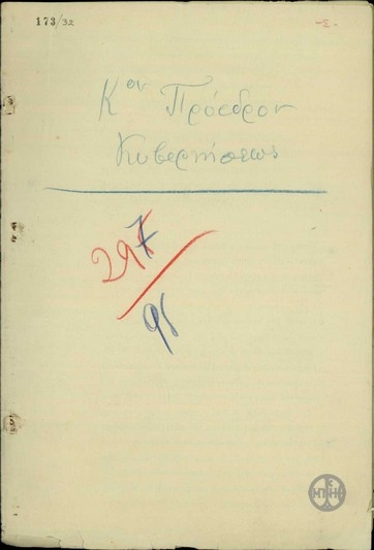 173/32
-Σ-
Κον Πρόεδρον
Κυβερνήσεως
297